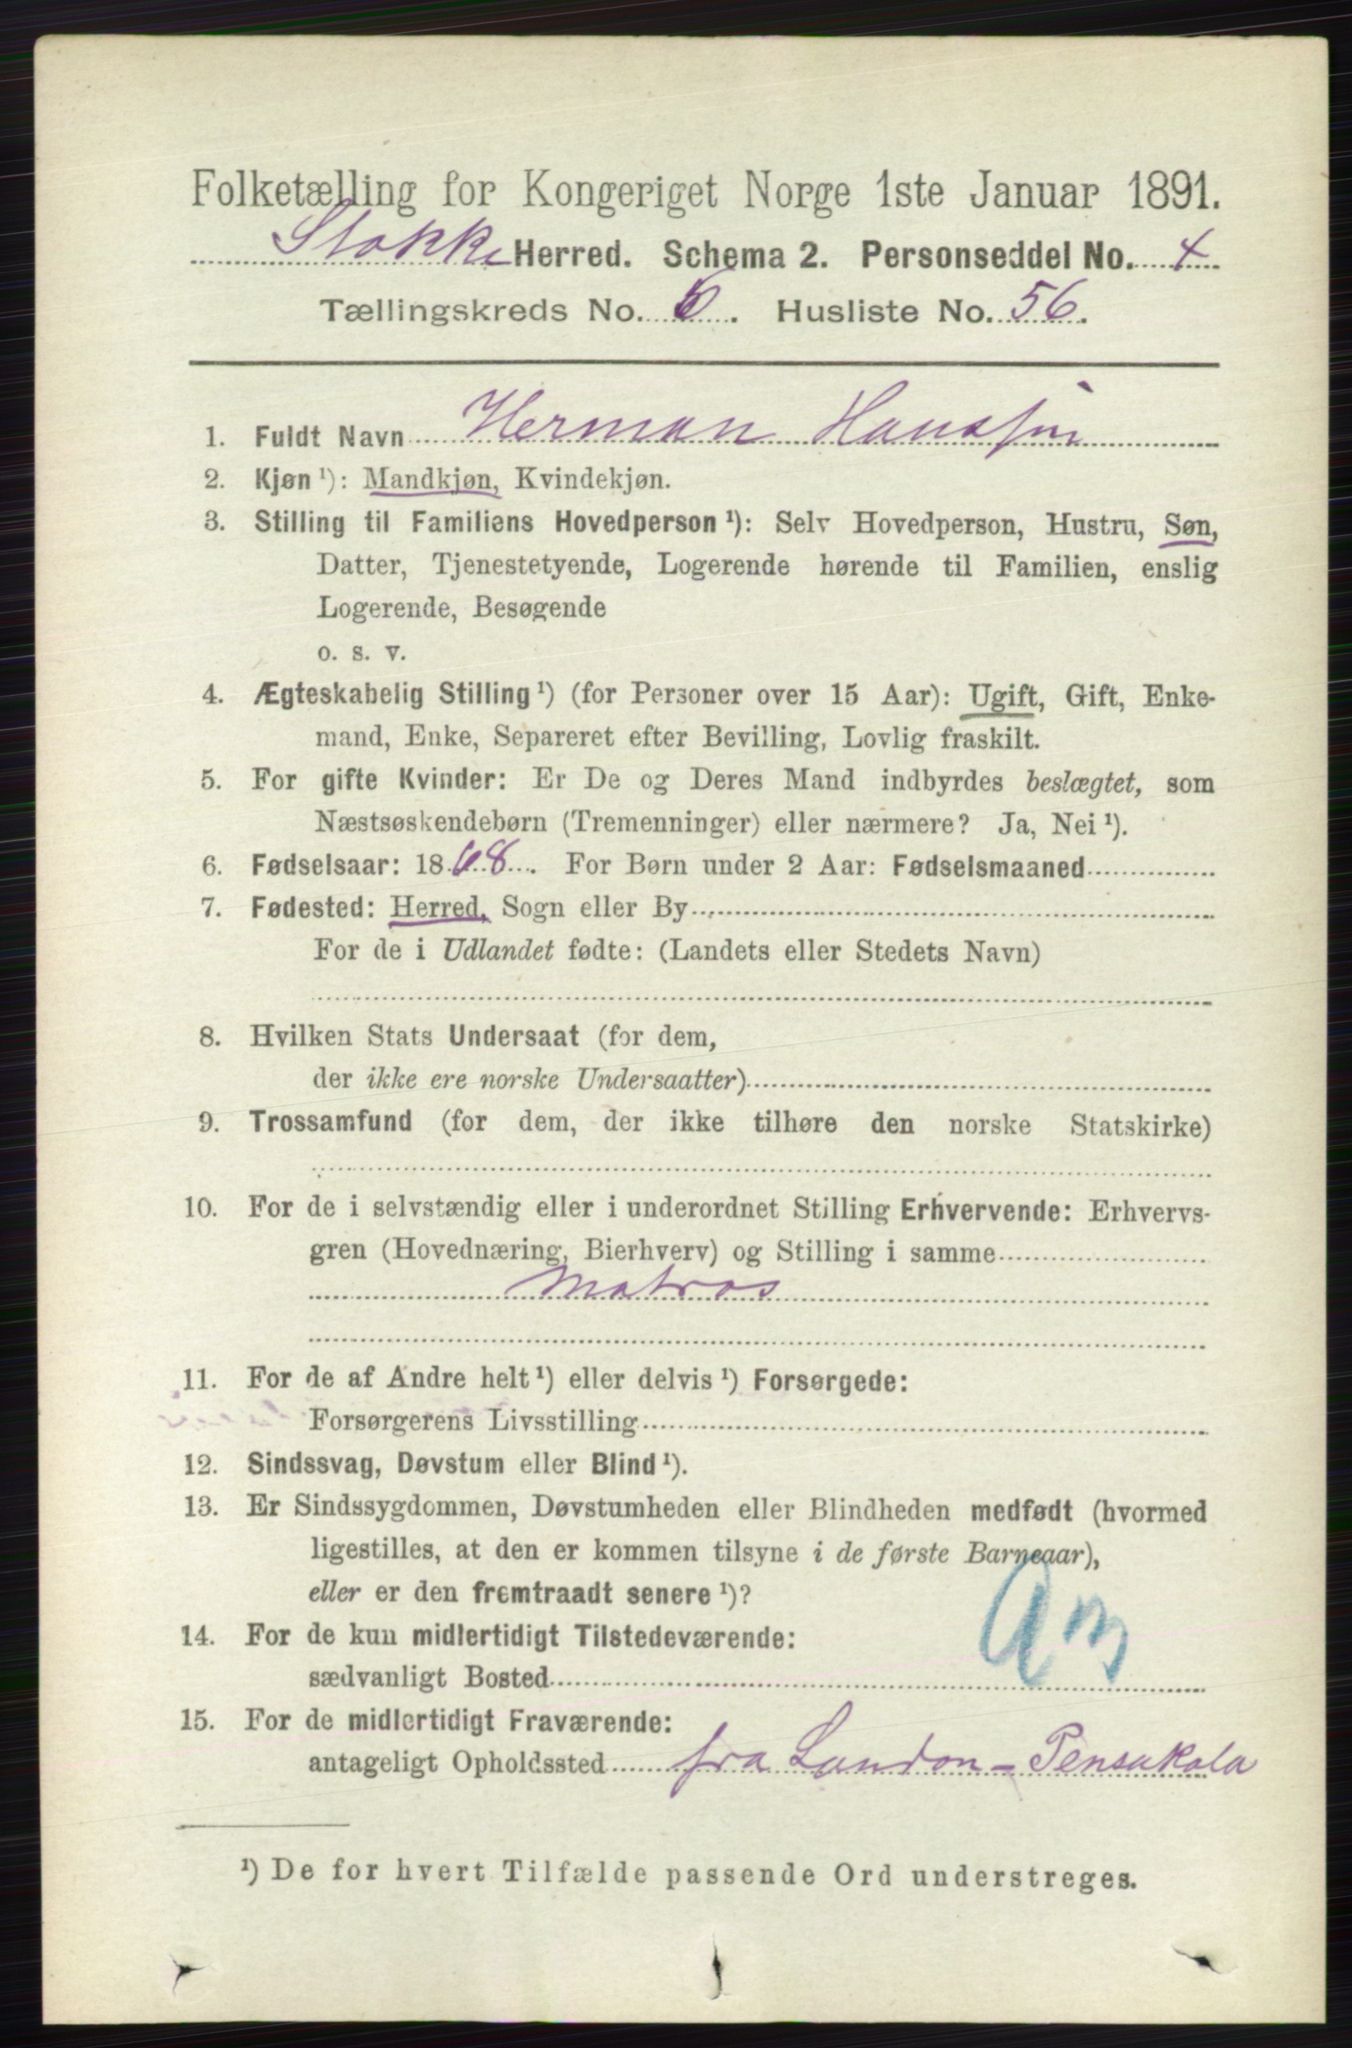 Folketælling for Kongeriget Norge 1ste Januar 1891.
Stokke Herred. Schema 2. Personseddel No. 4
Tællingskreds No. 6. Husliste No. 56.
1. Fuldt Navn Herman Hanssøn
2. Kjøn ¹): Mandkjøn, Kvindekjøn.
3. Stilling til Familiens Hovedperson ¹): Selv Hovedperson, Hustru, Søn,
Datter, Tjenestetyende, Logerende hørende til Familien, enslig
Logerende, Besøgende
o. s. v.
4. Ægteskabelig Stilling ¹) (for Personer over 15 Aar): Ugift, Gift, Enke-
mand, Enke, Separeret efter Bevilling, Lovlig fraskilt.
5. For gifte Kvinder: Er De og Deres Mand indbyrdes beslægtet, som
Næstsøskendebørn (Tremenninger) eller nærmere? Ja, Nei ¹).
6. Fødselsaar: 1868. For Børn under 2 Aar: Fødselsmaaned
7. Fødested: Herred, Sogn eller By
For de i Udlandet fødte: (Landets eller Stedets Navn)
8. Hvilken Stats Undersaat (for dem,
der ikke ere norske Undersaatter)
9. Trossamfund (for dem, der ikke tilhøre den norske Statskirke)
10. For de i selvstændig eller i underordnet Stilling Erhvervende: Erhvervs-
gren (Hovednæring, Bierhverv) og Stilling i samme
Matros
11. For de af Andre helt ¹) eller delvis ¹) Forsørgede:
Forsørgerens Livsstilling
12. Sindssvag, Døvstum eller Blind ¹).
13. Er Sindssygdommen, Døvstumheden eller Blindheden medfødt (hvormed
ligestilles, at den er kommen tilsyne i de første Barneaar),
eller er den fremtraadt senere ¹)?
14. For de kun midlertidigt Tilstedeværende:
sædvanligt Bosted
15. For de midlertidigt Fraværende:
antageligt Opholdssted fra London - Pensakola
¹) De for hvert Tilfælde passende Ord understreges.